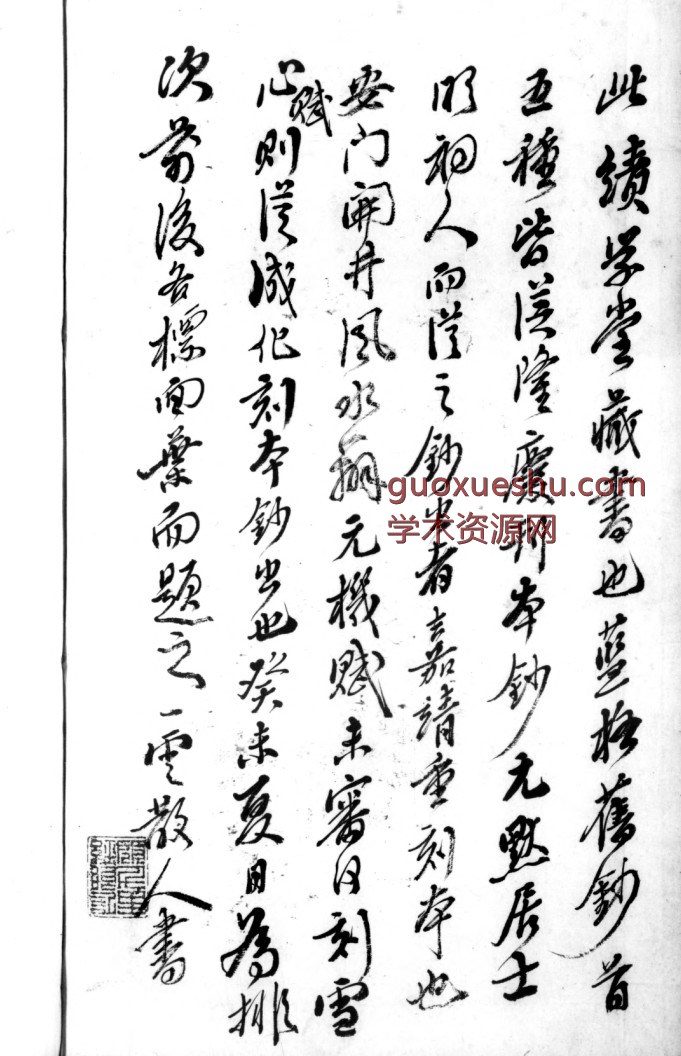 此績学堂藏書也藍格舊鈔首
五種皆從隆慶刊本鈔元默居士
明初人而從之鈔出者嘉靖重刻本也
要门開井風水 元機賦未審何刻雪
心賦则從成化刻本鈔出也癸未夏日為排
次前後各標面葉而題之一雲散人書
guoxueshu.com
学术资源网